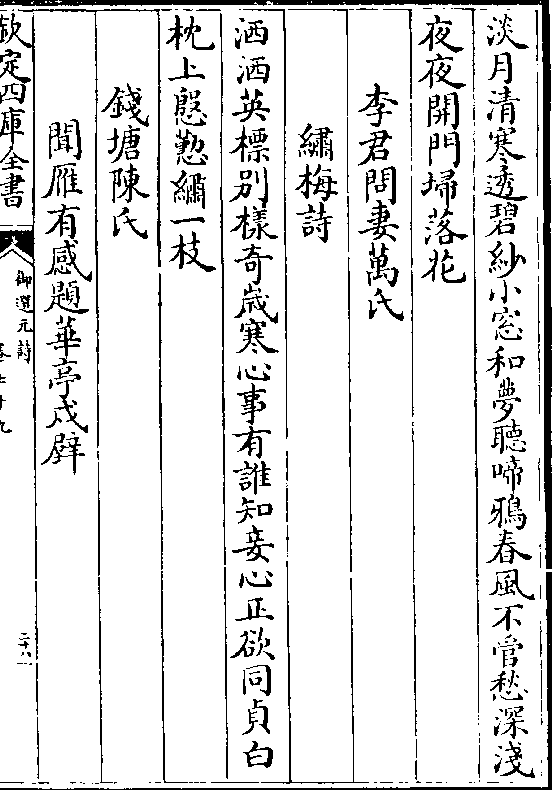 淡月清寒透碧紗小窓和夢聽啼鴉春風不管愁深淺
夜夜開門埽落花
李君問妻萬氏
繡梅詩
洒洒英標别樣奇嵗寒心事有誰知妾心正欲同貞白
枕上慇懃繡一枝
錢塘陳氏
聞雁有感題華亭戍壁
欽定四庫全書
御選元詩